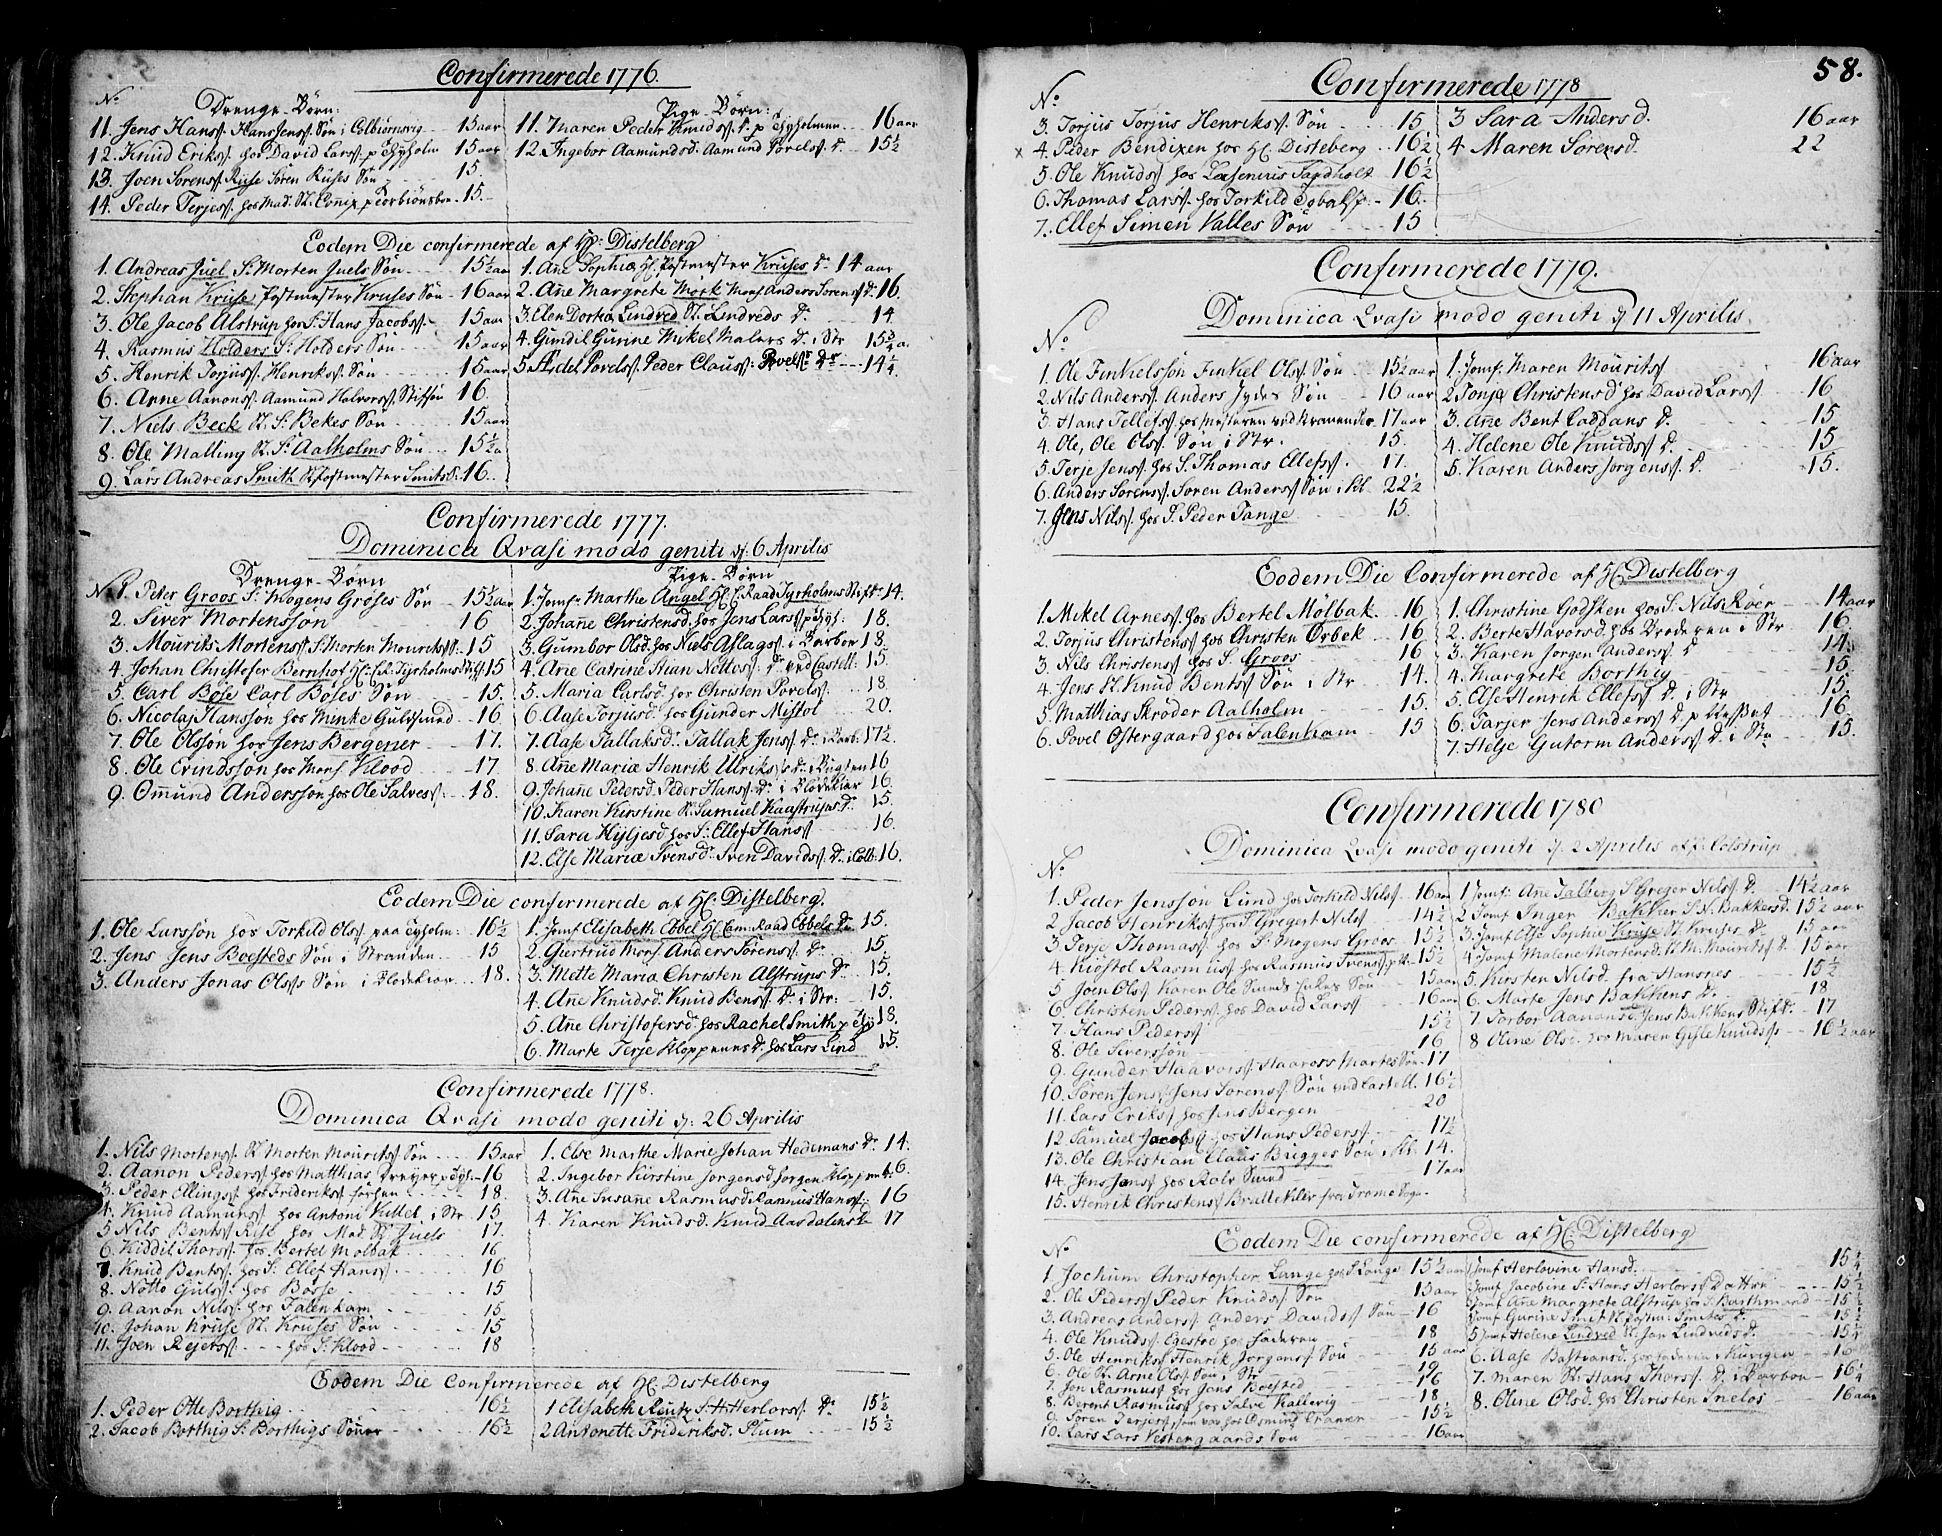 Confirmerede 1776.
No
Drenge-Børn:
11. Jens Hanss. Hans Jenss. Søn i Colbiørnsvig - 15 aar
12. Knud Erikss. hos David Larss. p Tyholm 15 aar
13. Joen Sørenss. Ruse Søren Ruses Søn - 15.
14. Peder Terjess. hos Mad. Sl. 15.
Pige-Børn:
11. Maren Peder Knudss. D. p Tyholmen 16 aar
12. Ingebor Aamundsd. Aamund Povelss. D. 15½
Eodem Die confirmerede af H: Distelberg
1. Andreas Juel S. Morten Juels Søn 15½ aar
2. Stephan Kruse, Postmester Kruses Søn - 16 aar
3. Ole Jacob Alstrup hos S. Hans Jacobss. 15 aar
4. Rasmus Holders S. Holders Søn 15 aar
5. Henrik Torjuss. Henrikss. Søn 15 aar
6. Anne Aanonss. Aamund Halvorss. Stifsøn 16.
7. Niels Beck Sl. S. Bekes Søn 15 aar
8. Ole Malling Sl. S. Aalholms Søn 15½ a
9. Lars Andreas Smith Sl. Postmester Smits S. 16.
1. Añe Sophia H. Postmester Kruses D. 14 aar
2. Añe Margrete Mørk Mons. Anders Sørenss. D. 16.
3. Elen Dorka Lindved Sl. Lindveds D. 14
4. Gundil Gurine Mikel Malers D. i Str 15¾ a.
5. Sidel Povelss. Peder Clauss: Povels D. 14¼
Confirmerede 1777.
Dominica Qvasi modo geniti d: 6 Aprilis
Drenge-Børn
No 1. Peter Groos S. Mogens Groses Søn 15½ aar
2. Siver Mortenssøn 16
3. Mouriks Mortenss. S. Morten Mourikss. S. 15
4. Johan Christofer Bernhof H. C. R. Tyrholms Stifs. 15
5. Carl Bøse Carl Bøses Søn 15.
6. Nicolaj Hanssøn hos Minke Guldsmed 16
7. Ole Olssøn hos Jens Bergener 17.
8. Ole Erindssøn hos Mons. Klood 17
9. Omund Anderssøn hos Ole Salvess. 18.
Pige-Børn
1. Jomf. Marthe Angel H. C. Raad Tyrholms Stifdr. 14.
2. Johañe Christensd. hos Jens Larss. p Tyh. 18.
3. Gumbor Olsd. hos Niels Aslags i Barboe 18.
4. Añe Catrine Stian Nottos D. ved Castell: 15.
5. Maria Carlsd. hos Christen Povelss. 18
6. Aase Torjusd. hos Gunder Mistol 20.
7. Aase Tallaksd. Tallak Jenss. D. i Barb. 17½.
8. Añe Maria Henrik Ulriks D. i Bugten 16
9. Johañe Pedersd. Peder Hanss. D. i Blødekiær 16
10. Karen Kirstine Sl. Samuel Kaastrups D. 15.
11. Sara Hyljesd hos S. Ellef Hanss 16.
12. Else Mariæ Svensd. Sven Davids D. i Colb: 16.
Eodem Die confirmerede af H: Distelberg.
1. Ole Larssøn hos Torkild Olss paa Tyholm: 16½
2. Jens Jens Boesteds Søn i Stranden 15
3. Anders Jonas Olss Søn i Blødekiær 18.
1. Jomf Elisabeth Ebbel H. Cam:Raad Ebbels D. 15.
2. Giertrud Mons. Anders Sørenss. D. 15.
3. Mette Maria Christen Alstrups D. 15.
4. Añe Knudsd. Knud Bens D. i Str: 15.
5. Añe Christofersd. hos Rachel Smith p Ty 18.
6. Marte Terje Kloppenes D. hos Lars Lind 15.
Confirmerede 1778.
Dominica Qvasi modo geniti d: 26 Aprilis
1. Nils Mortenss. Sl. Morten Mouritss Søn 15 aar
2. Aanon Pederss hos Matthias Dreyer p Tyh. 16
3. Peder Ellingss hos Frideriks 18.
4. Knud Aamunss hos Antoni Kittel i Str 15
5 Nils Bentss Riise hos Mad. Sl. Juels 17.
6. Kiddil Thorss. hos Bertel Molbak 16
7. Knud Bentss. hos S. Ellef Hanss. 16
8. Notto Gulss. hos Bøsse 15
9. Aanon Nilss. hos Falenkam 15
10. Johan Kruse Sl. Kruses Søn 15
11. Joen Rejerss. - - - hos S. Klood 18
1. Else Marthe Marie Johan Hedemans D. 14.
2. Ingebor Kirstine Jorgensd Jorgen Kloppen 16.
3. Añe Susañe Rasmusd Rasmus Hanss. 16
4. Karen Knudsd. Knud Aasdalens D 17
Eodem Die Confirmerede af H: Distelberg
1. Peder Otte Borthig 16½
2. Jacob Borthig S. Borthigs Sønner 16½
1 Elisabeth Reutz S. H. Herlovs. D. 15½
2 Antonette Frideriksd. Plum 15½
58.
Confirmerede 1778
No
3. Torjus Torjus Henrikss. Søn 15
x 4. Peder Bendixen hos H. Disteberg 16½
5. Ole Knudss hos Lasenius Tagdholt 16½
6. Thomas Larss. hos Torkild 16.
7. Ellef Simen Valles Søn 15
3 Sara Andersd. 16 aar
4 Maren Sørensd. 22
Confirmerede 1779.
Dominica Qvasi modo geniti d 11 Aprilis
No
1. Ole Finkelssøn Finkel Olss Søn 15½ aar
2. Nils Anderss. Anders Jydes Søn 16 aar
3. Hans Tellefss. hos 17 aar
4. Ole, Ole Olss. Søn i Str. 15.
5. Terje Jenss. hos S. Thomas Ellefss. 17.
6. Anders Sørenss. Søren Anderss Søn i Kl 22½
7. Jens Nilss. hos S. Peder Tange 15.
1. Jomf. Maren Mouritss 16 aar
2 Tonje Christensd. hos David Larss. 16
3. Añe Bent Caddans D. 15
4. Helene Ole Knudss. D. 15
5. Karen Anders Jørgenss. D. 15.
Eodem Die Confirmerede af H: Distelberg
1. Mikel Arness. hos Bertel Mølbak. 16
2. Torjus Christens hos Christen Orbek 16
3. Nils Christenss hos S. Groos 16
4. Jens Sl. Knud Bents Søn i Str 14.
5. Matthias Skrøder Aalholm 15.
6. Povel Østergaard hos Falenkam 15
1. Christine Godsken hos S. Nils Røer 14 aar
2. Berte Havorsd. hos Broderen i Str 16.
3. Karen Jorgen Anderss D 14.
4. Margrete Borthig 15.
5. Else Henrik Ellefss D. i Str 15.
6. Tarjer Jens Anderss D. p 16.
7. Helje Gutorm Anderss D. i Str 15.
Confirmerede 1780
Dominica Qvasi modo geniti d. 2 Aprilis af H. Colstrup
No
1. Peder Jenssøn Lind hos Torkild Nilss 16 aar
2 Jacob Henrikss hos S. Gregert Nilss 14½
3. Terje Thomass. hos S. Mogens Groos 15½
4. Kiøstol Rasmus hos Rasmus Svens 15½
5 Joen Olss Karen Ole Søn 15 aar
6. Christen Pederss. hos David Larss 16 aar
7. Hans Pederss 15½
8. Ole Siverssøn 16
9. Gunder Haavorss. Haavors Martes Søn 17
10. Søren Jenss. Jens Sørenss Søn ved Castell. 16½
11. Lars Erikss hos Jens Bergen 20
12. Samuel Jacobss hos Hans Pederss 17½
13. Ole Christian Claus Brigges Søn i Kl. 14.
14. Jens Jenss hos Rolv Sund 17 aar
15. Henrik Christenss Bratteklev fra Tromø Sogn.
1 Jomf. Añe Talberg S. Greger Nilss D. 14½ aar
2 Jomf Inger Bakker S. N. Bakkers D. 15½ aar
3. Jomf Else Sophie Kruse Sl. Kruses D. 15 aar
4 Jomf Malene Mortensd. Sl. M. Mouritss D 15 aar
5. Kirsten Nilsd. fra Hansnes 15½
6. Marte Jens Bakkens D. 18
7 Torbor Aanansd. Jens Bakkens Stifdr. 17
8 Oline Olsd. hos Maren Gisle Knudss 16½ aar
Eodem Die confirmerede af H: Distelberg
No
1. Jochum Christopher Lange hos S. Lange 15½ aar
2. Ole Pederss Peder Knudss Søn 15 aar
3. Andreas Anderss Anders Davids Søn 16
4. Ole Knudss. Egestø hos Faderen 18
5. Ole Henrikss Henrik Jorgenss Søn 15 aar
6. Ole Sl. Arne Olss Søn i Str 19
7. Jon Rasmuss hos Jens Boested 16
8. Berent Rasmuss hos Salve Kallevig 18
9. Søren Terjess, som var hos Osmund 15½
10. Lars Lars Vestergaards Søn 16 aar
Jomf Herlovine Hansd. 15¼
Jomf Jacobine S. Hans Herlovs Datter 15½
Jomf Añe Margrete Alstrup hos S. Barthmand 15½
Jomf Gurine Smit Sl. Postm: Smites D. 15½
5 Jomf Helene Lindved Sl. Jan Lindveds D. 15¼
6. Aase Bastiansd. hos Faderen i Kuvigen 16
7. Maren Sl. Hans Thorss. D. i Barboe 16¼
8. Oline Olsd. hos Christen Sneløs 16 aar